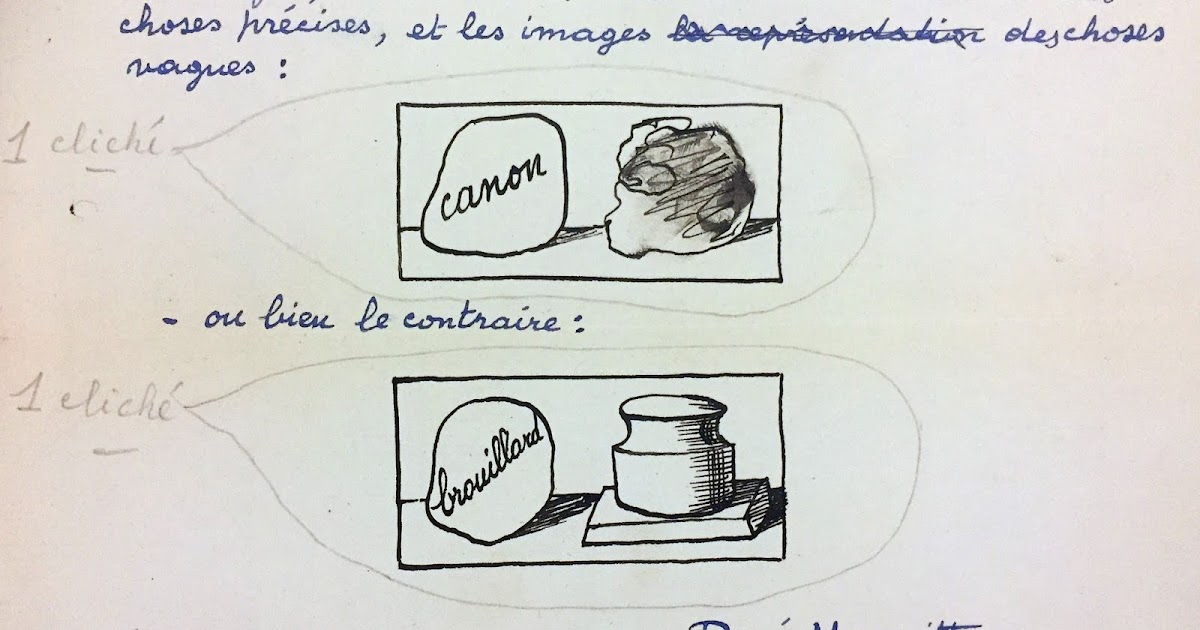 choses précises, et les images des choses
vagues :
1 cliché
canon
- ou bien le contraire :
1 cliché
brouillard
René